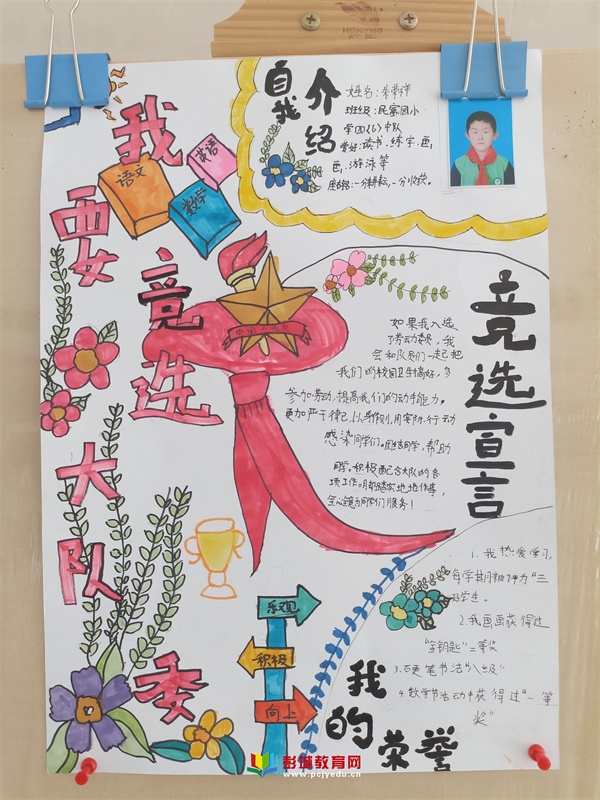 我要竞选大队委
语文
英语
数学
自我介绍
姓名:朱荣祥
班级:民富园小
学四(6)中队
爱好:读书、练字、画
画、游泳等
座右铭:一分耕耘,一分收获。
中国少先队
竞选宣言
如果我入选
了劳动委员,我
会和队员们一起把
我们的校园卫生搞好,多
参加劳动,提高我们的动手能力。
更加严于律己,以身作则,用实际行动
感染同学们。团结同学,帮助
同学。积极配合大队的各
项工作。脚踏实地地作事,
全心全意为同学们服务!
乐观
积极
向上
我的荣誉
1. 我热爱学习,
每学期被评为"三
好学生。
2.我画画获得过
"金钥匙"二等奖
3.硬笔书法"八级"
4.数学节活动中获得过"一等
奖"
彭城教育网
www.pcjyedu.cn